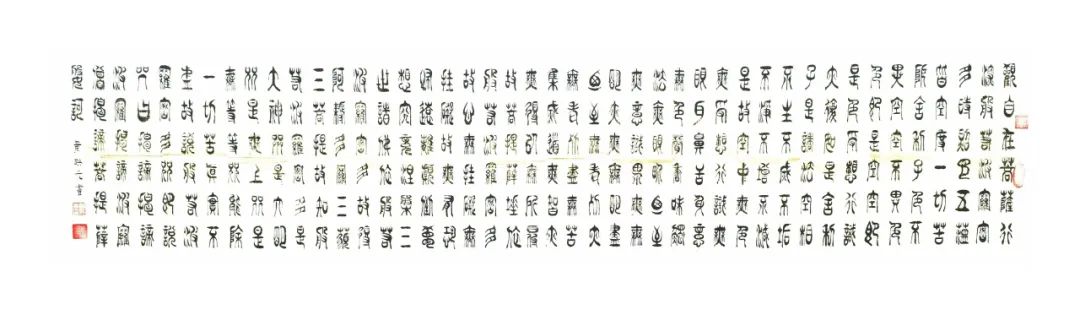 觀自在菩薩行
深般若波羅蜜
多時照見五蘊
皆空度一切苦
厄舍利子色不
異空空不異色
色即是空空即
是色受想行識
亦復如是舍利
子是諸法空相
不生不滅不垢
不淨不增不減
是故空中無色
無受想行識無
眼耳鼻舌身意
無色聲香味觸
法無眼界乃至
無意識界無無
明亦無無明盡
乃至無老死亦
無老死盡無苦
集滅道無智亦
無得以無所得
故菩提薩埵依
般若波羅蜜多
故心無罣礙無
罣礙故無有恐
怖遠離顛倒夢
想究竟涅槃三
世諸佛依般若
波羅蜜多故得
阿耨多羅三藐
三菩提故知般
若波羅蜜多是
大神咒是大明
咒是無上咒是
無等等咒能除
一切苦真實不
虛故說般若波
羅蜜多咒即說
咒曰揭諦揭諦
波羅揭諦波羅
僧揭諦菩提薩
婆訶